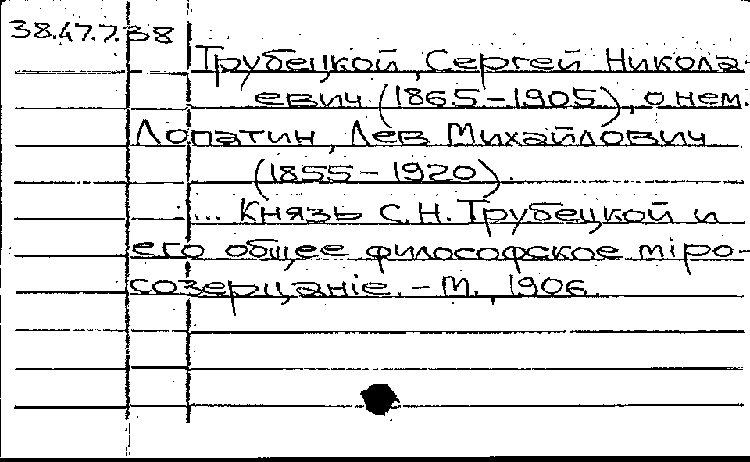 38.47.7.38
Трубецкой, Сергей Никола-
евич (1865-1905), о нем.
Лопатин, Лев Михайлович
(1855-1920).
... Князь С.Н. Трубецкой и
его общее философское міро-
созерцаніе. - М., 1906.